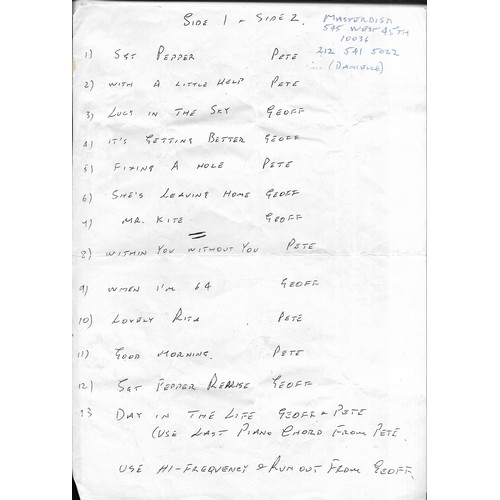 SIDE 1 - SIDE 2.
MASTERDISK
575 WEST 45TH
10036
212 541 5022
... (DANIELLE)
1) SGT PEPPER PETE
2) WITH A LITTLE HELP PETE
3) LUCY IN THE SKY GEOFF
4) IT'S GETTING BETTER GEOFF
5) FIXING A HOLE PETE
6) SHE'S LEAVING HOME GEOFF
7) MR. KITE GEOFF
8) WITHIN YOU WITHOUT YOU PETE
9) WHEN I'M 64 GEOFF
10) LOVELY RITA PETE
11) GOOD MORNING. PETE
12) SGT PEPPER REPRISE GEOFF
13 DAY IN THE LIFE GEOFF & PETE
(USE LAST PIANO CHORD FROM PETE
USE HI-FREQUENCY & RUN OUT FROM GEOFF